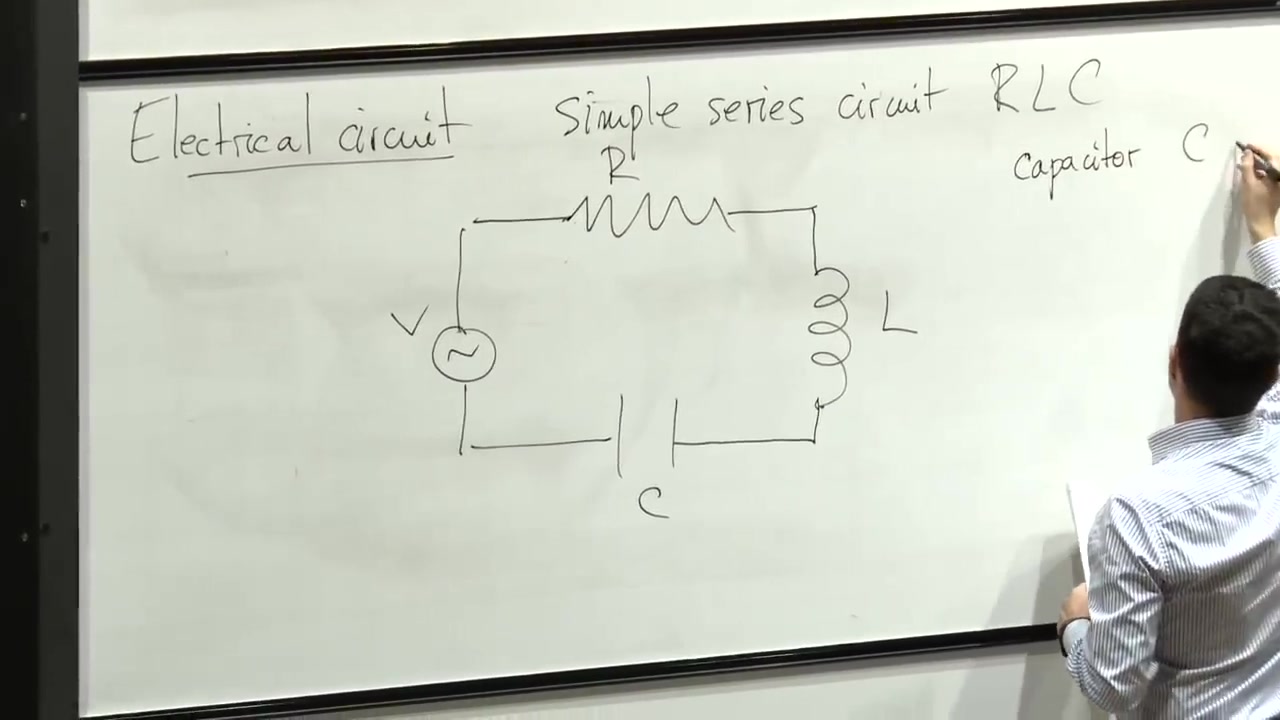 Electrical circuit Simple series circuit RLC
Capacitor C
R
V
L
C